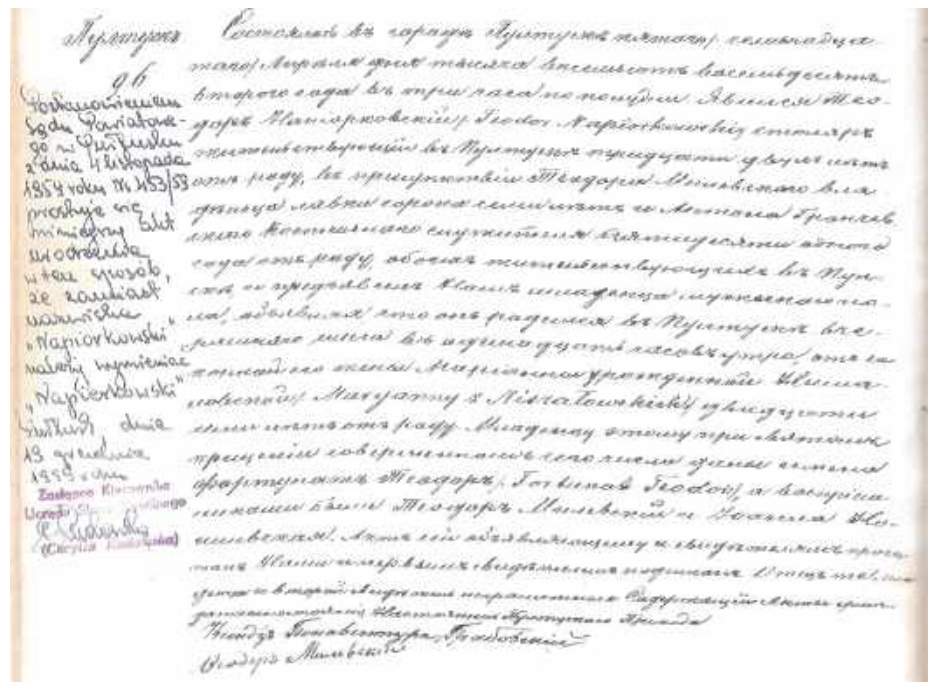 Пултускъ
96
Postanowieniem
Sądu Powiatowe-
go w Pułtusku
z dnia 4 listopada
1959 roku Nr 453/59
prostuje się
niniejszy akt
urodzenia
w ten sposób,
że zamiast
nazwiska
„Napiorkowski”
należy wymieniać
„Napierkowski”
Pułtusk, dnia
19 grudnia
1959 roku
Zastępca Kierownika
Urzędu Stanu Cywilnego
Состоялось въ городѣ Пултускѣ пятаго / семьнадца-
таго / Апрѣля дня тысяча восемьсотъ восемьдесятъ
втораго года въ три часа по полудни. Явился Тео-
доръ Напiорковскiй / Teodor Napiórkowski / столяръ
жительствующiй въ Пултускѣ тридцати двухъ лѣтъ
отъ роду, въ присутствiи Теодора Милевского вла-
дѣльца лавки сорока семи лѣтъ и Антона
скаго костельнаго служителя пятидесяти одного
года отъ роду, обоихъ жительствующихъ въ Пул-
скѣ, и предъявилъ Намъ младенца мужескаго по-
ла, объявляя что онъ родился въ Пултускѣ вче-
рашняго числа въ одиннадцать часовъ утра, отъ за-
конной его жены Марiанны урожденной
/ Maryanny z / двадцати
семи лѣтъ отъ роду. Младенцу этому при святомъ
крещенiи совершенномъ сего числа даны имена
Фортунатъ Теодоръ / Fortunat Teodor /, а воспрiем-
никами были Теодоръ Милевскiй и
Актъ сей объявляющему и свидѣтелямъ прочи-
танъ Нами и первымъ свидѣтелемъ подписанъ. Отецъ
и второй свидѣтель неграмотны. Содержащiй Акты граж-
данскаго состоянiя Настоятель Пултускаго Прихода
Ксендзъ Бонавентура
Теодоръ Милевскiй